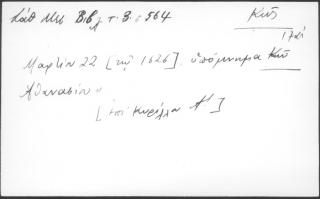 Σάθ Μεσ Βιβλ τ. 3. σ 564
Κῶ
1721
Μαρτίου 22 [τοῦ 1626]. ὑπόμνημα Κῶ
Ἀθανασίου
[ἐπὶ Κυρίλλου Α']